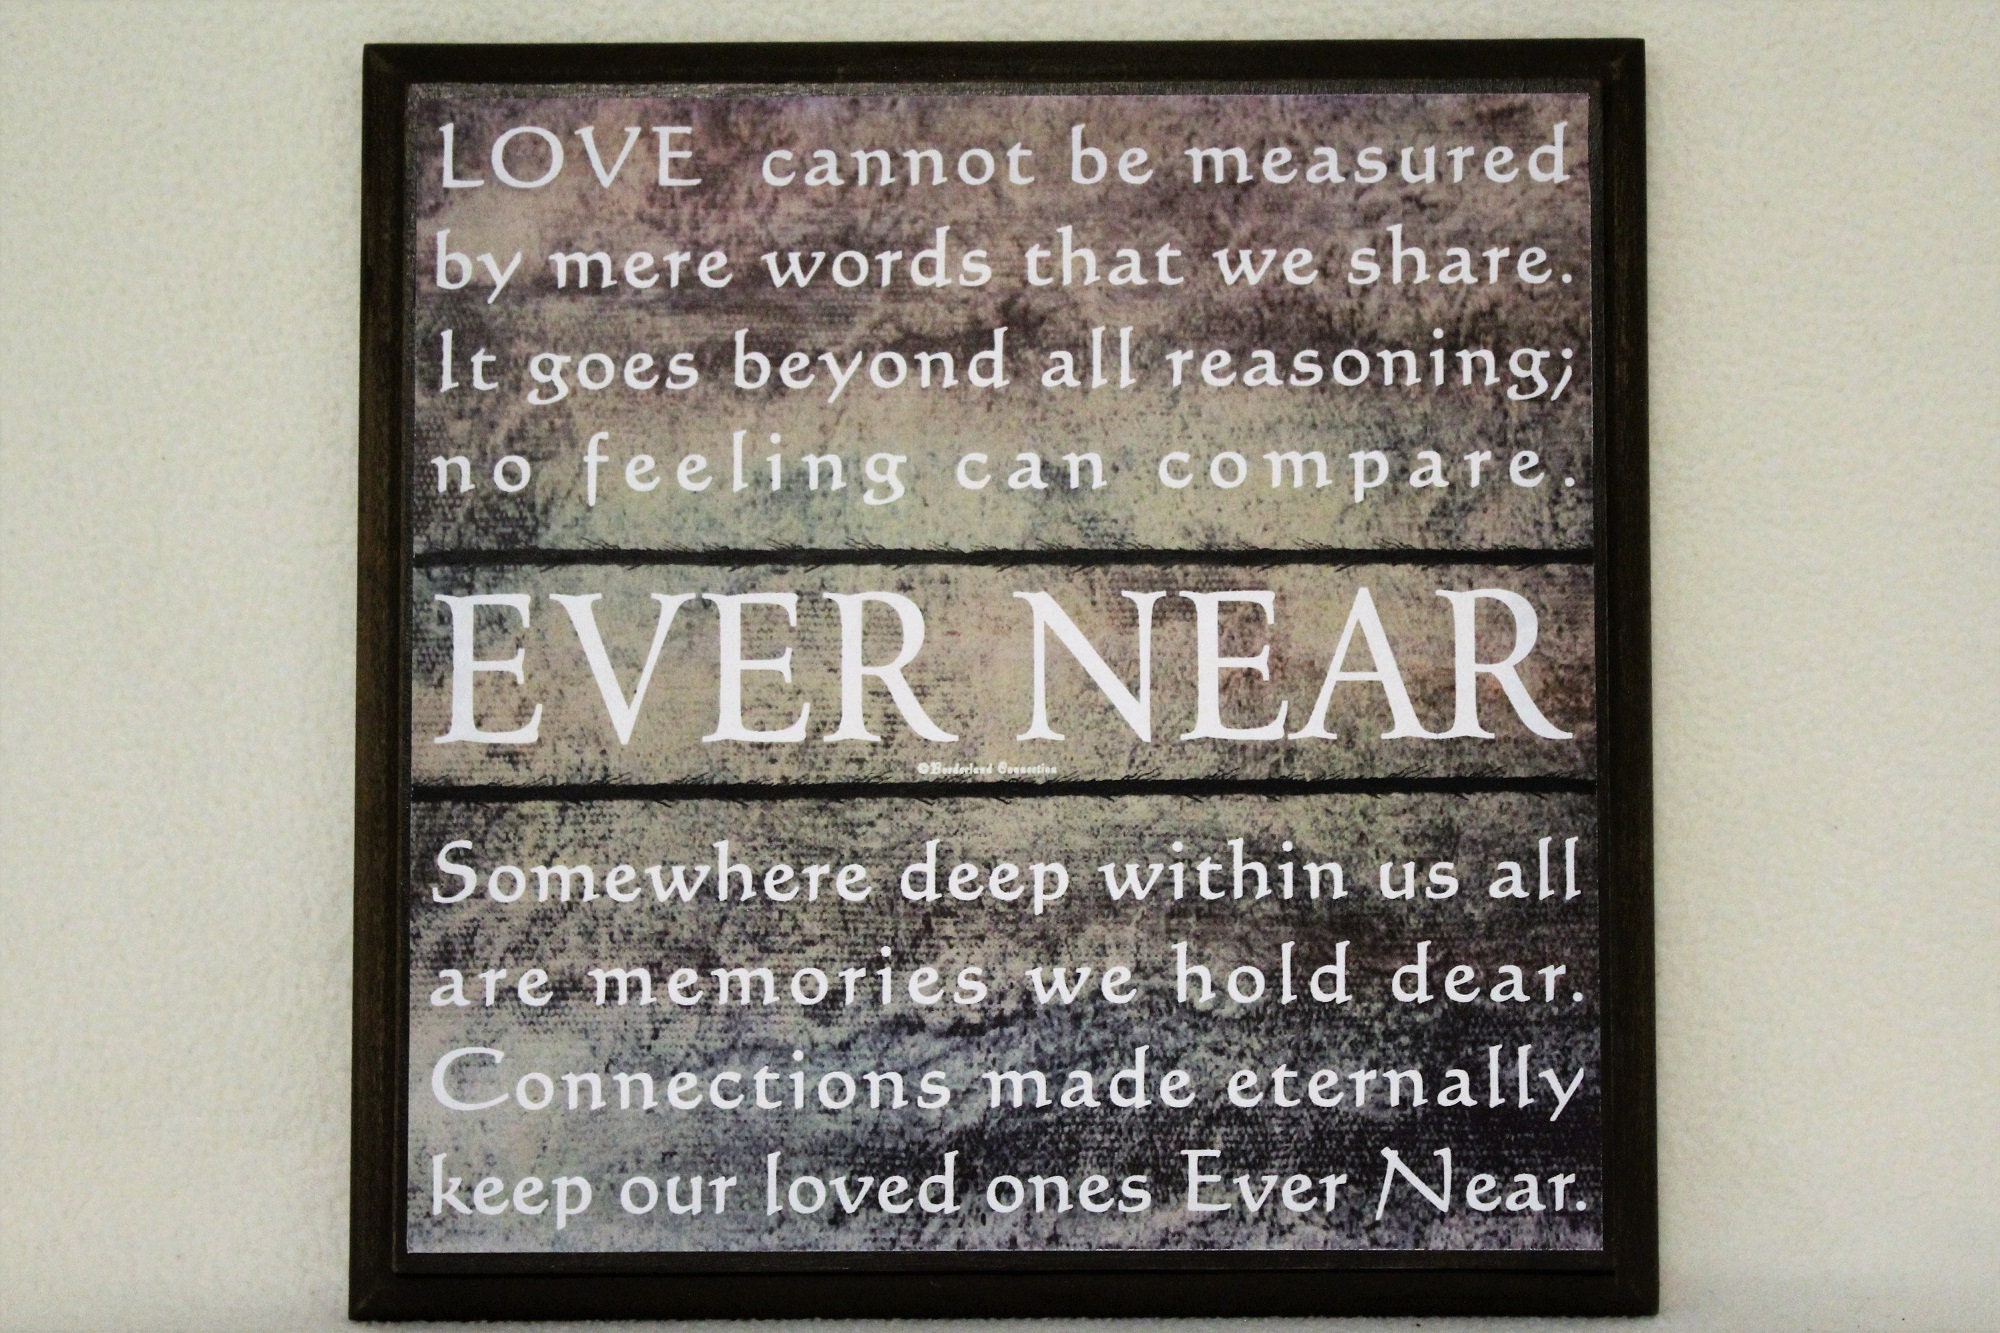 LOVE cannot be measured
by mere words that we share.
It goes beyond all reasoning;
no feeling can compare.
EVER NEAR
©Borderland Connection
Somewhere deep within us all
are memories we hold dear.
Connections made eternally
keep our loved ones Ever Near.